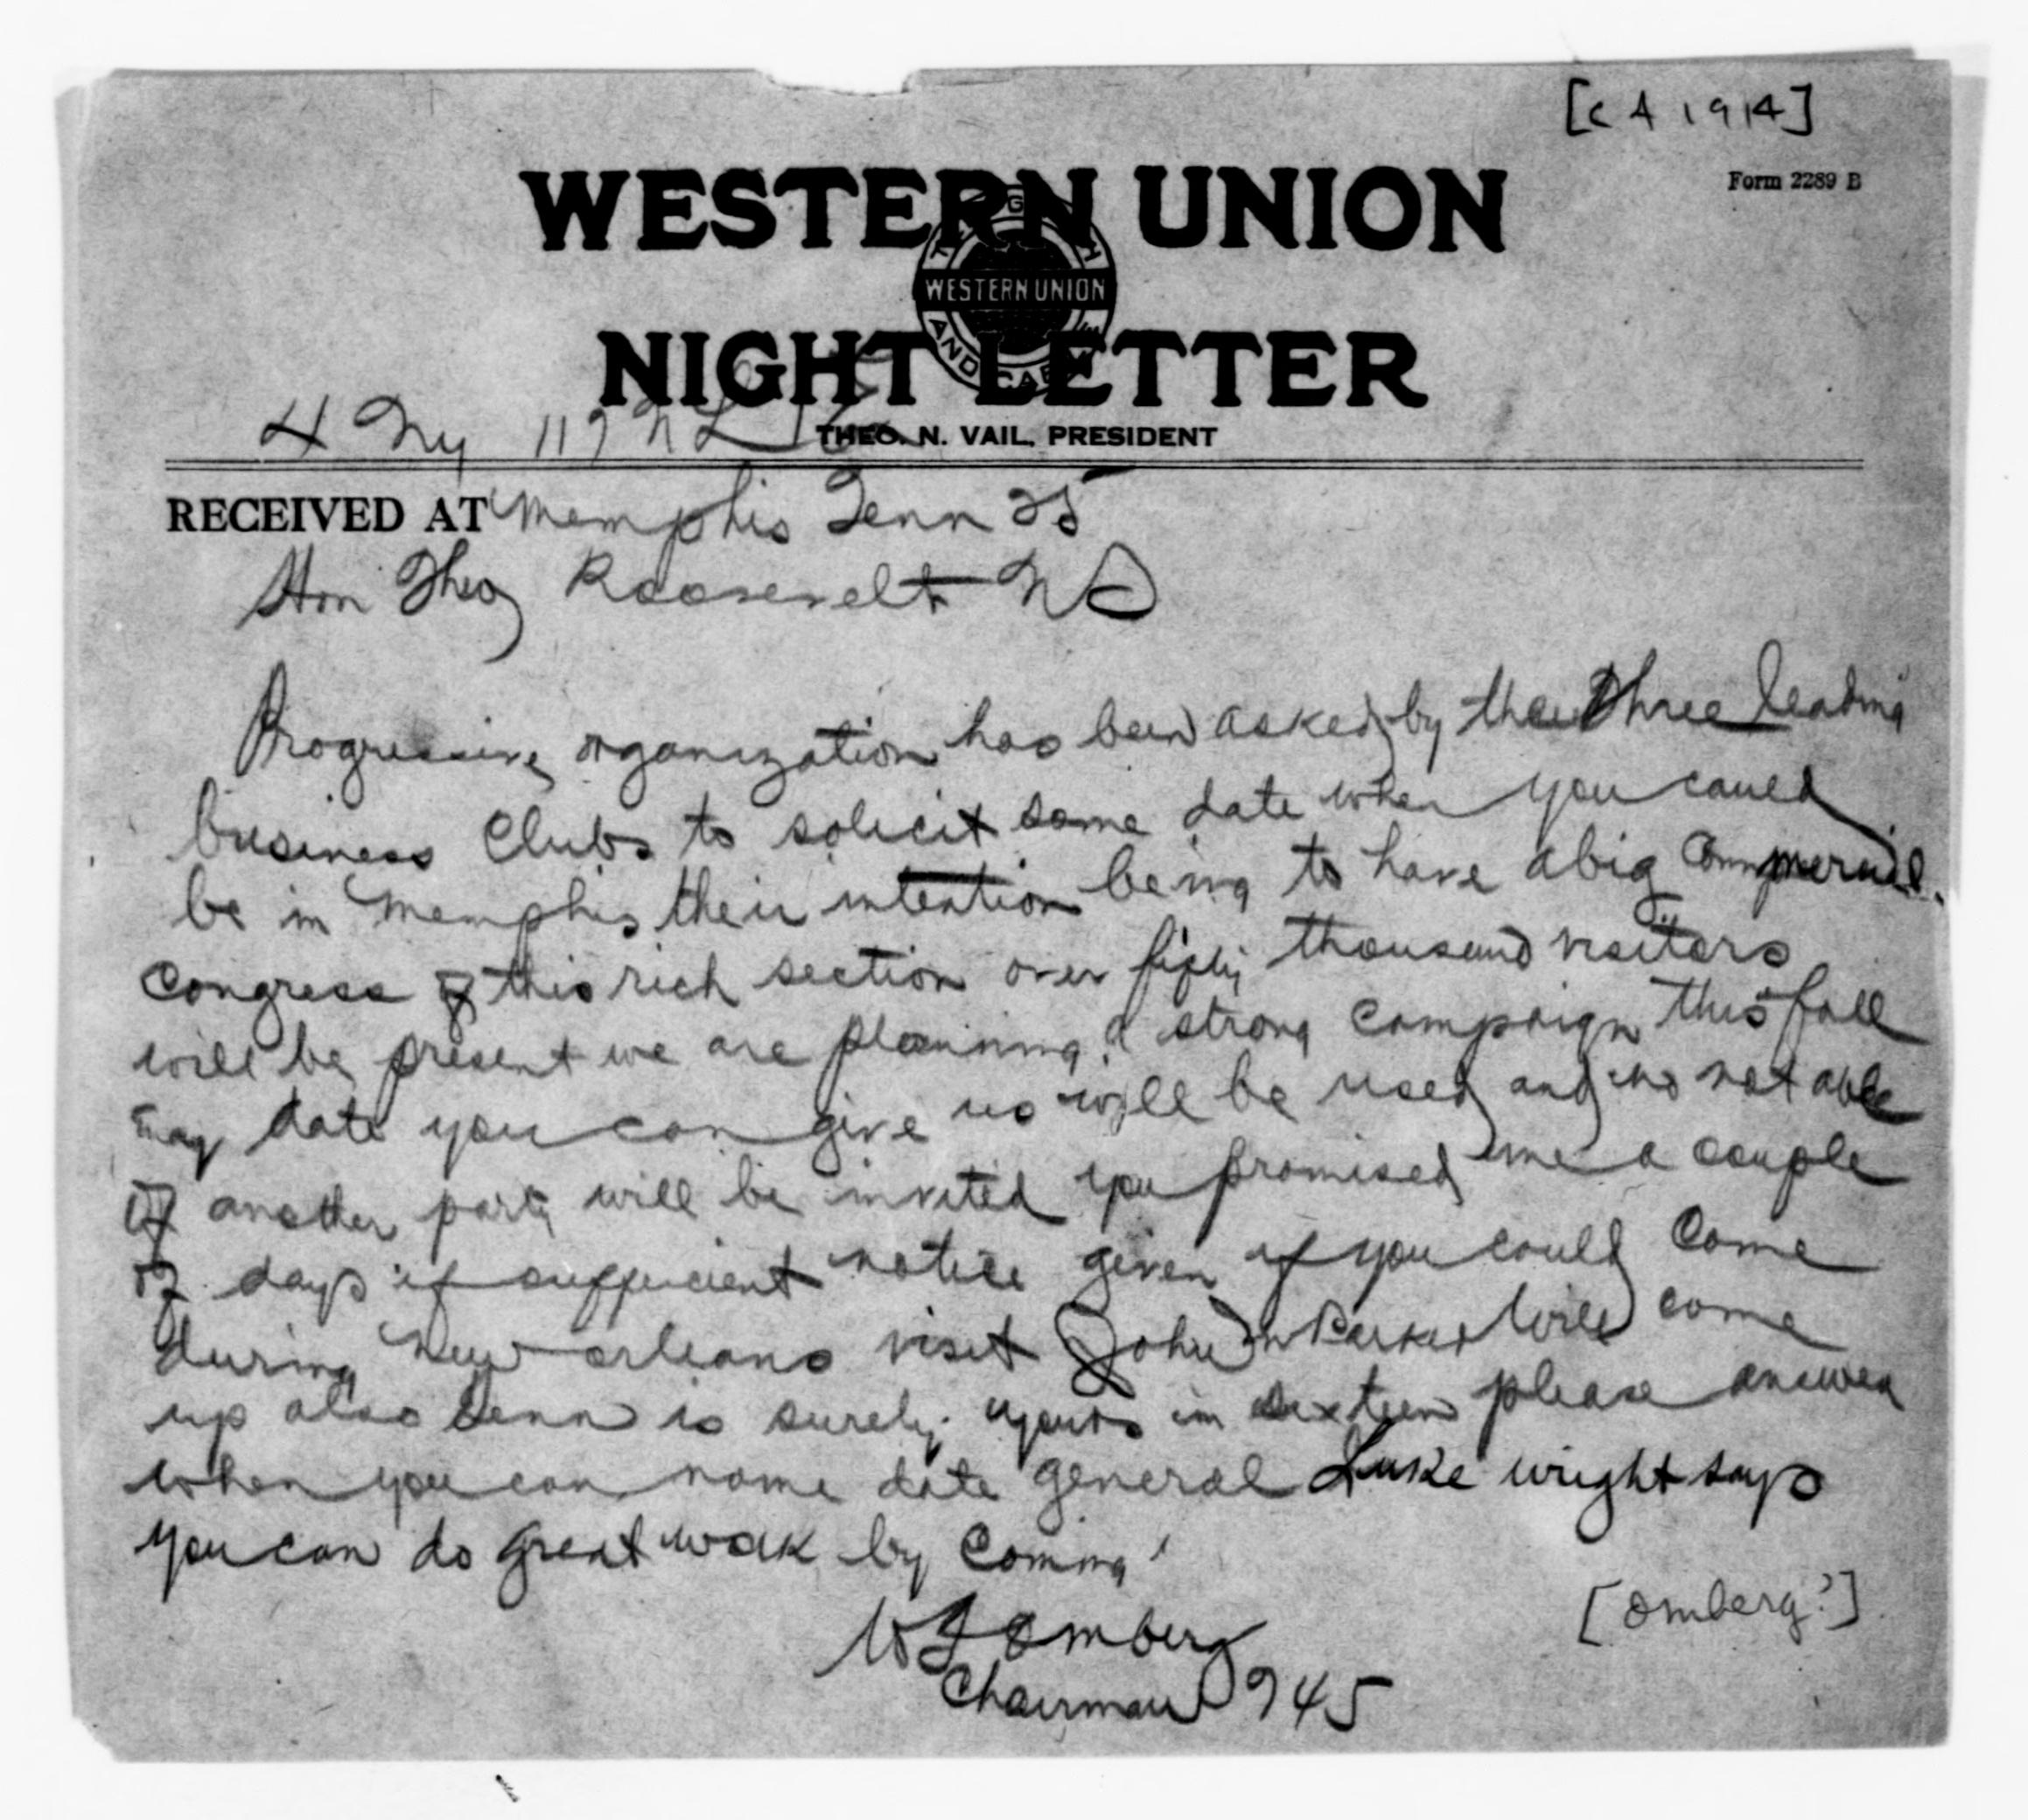 [CA 1914]
WESTERN UNION
Form 2289 B
TELEGRAPH AND CABLE
WESTERN UNION
NIGHT LETTER
4 Ny 117 NL
THEO. N. VAIL, PRESIDENT
RECEIVED AT Memphis Tenn 25
Hon Theo Roosevelt
Progressive organization has been asked by the three leading
business Clubs to solicit some date when you could
be in Memphis their intention being to have a big Commercial
Congress of this rich section over fifty thousand visitors
will be present we are planning a strong campaign this fall
any date you can give us will be used and no notable
of another party will be invited you promised me a couple
of days if sufficient notice given if you could come
during New orleans visit John Parker will come
up also Tenn is surely yours in sixteen please answer
when you can name date general Luke wright says
you can do great work by coming
Omberg
[Omberg?]
Chairman 945